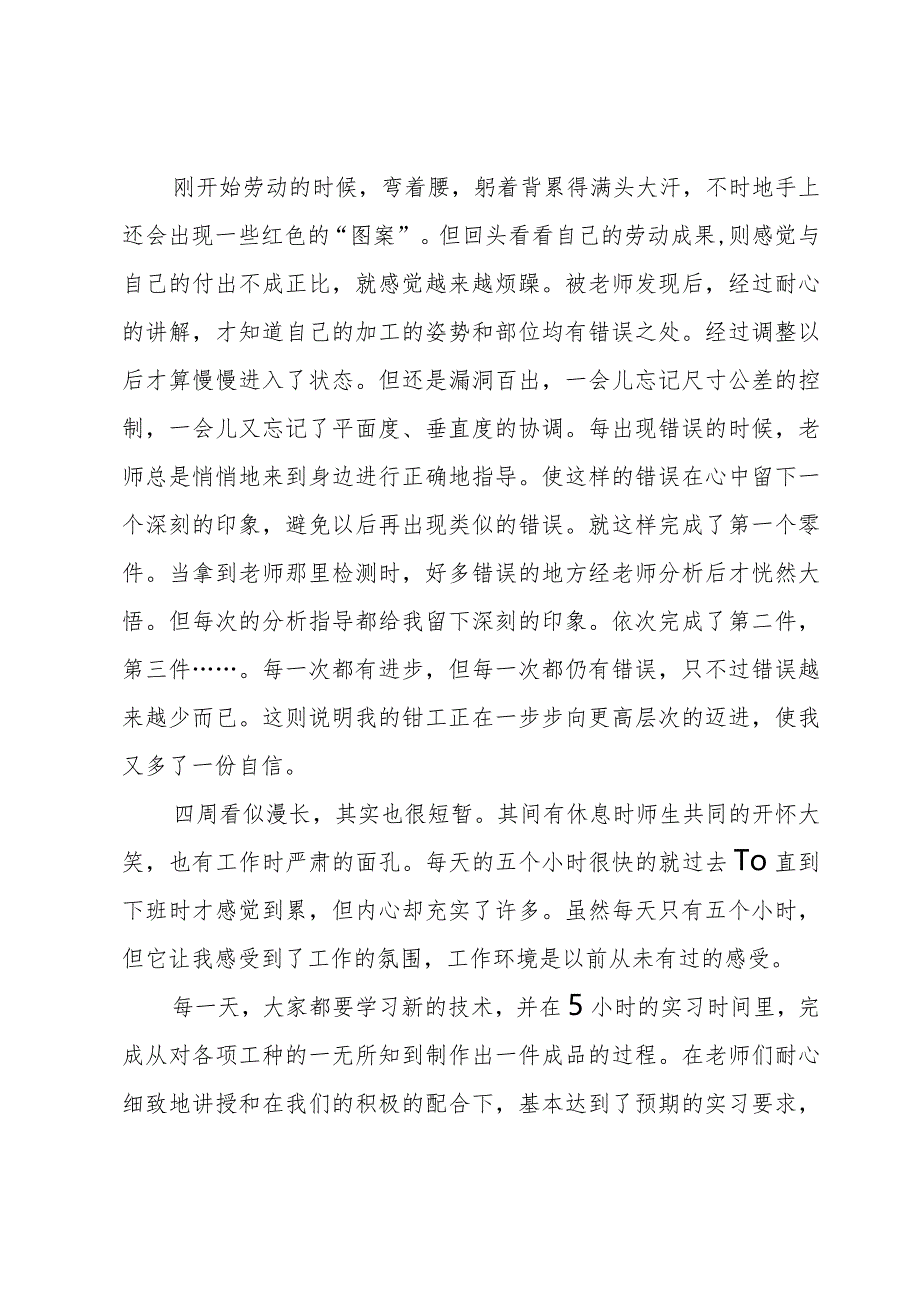 刚开始劳动的时候，弯着腰，躬着背累得满头大汗，不时地手上
还会出现一些红色的“图案”。但回头看看自己的劳动成果,则感觉与
自己的付出不成正比，就感觉越来越烦躁。被老师发现后，经过耐心
的讲解，才知道自己的加工的姿势和部位均有错误之处。经过调整以
后才算慢慢进入了状态。但还是漏洞百出，一会儿忘记尺寸公差的控
制，一会儿又忘记了平面度、垂直度的协调。每出现错误的时候，老
师总是悄悄地来到身边进行正确地指导。使这样的错误在心中留下一
个深刻的印象，避免以后再出现类似的错误。就这样完成了第一个零
件。当拿到老师那里检测时，好多错误的地方经老师分析后才恍然大
悟。但每次的分析指导都给我留下深刻的印象。依次完成了第二件，
第三件……。每一次都有进步，但每一次都仍有错误，只不过错误越
来越少而已。这则说明我的钳工正在一步步向更高层次的迈进，使我
又多了一份自信。
四周看似漫长，其实也很短暂。其间有休息时师生共同的开怀大
笑，也有工作时严肃的面孔。每天的五个小时很快的就过去To直到
下班时才感觉到累，但内心却充实了许多。虽然每天只有五个小时，
但它让我感受到了工作的氛围，工作环境是以前从未有过的感受。
每一天，大家都要学习新的技术，并在5小时的实习时间里，完
成从对各项工种的一无所知到制作出一件成品的过程。在老师们耐心
细致地讲授和在我们的积极的配合下，基本达到了预期的实习要求，